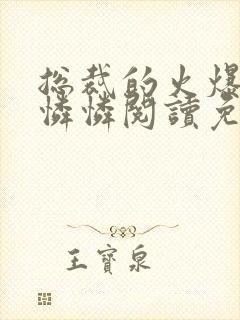 总裁的火爆
憐憐閱讀免
王寶泉